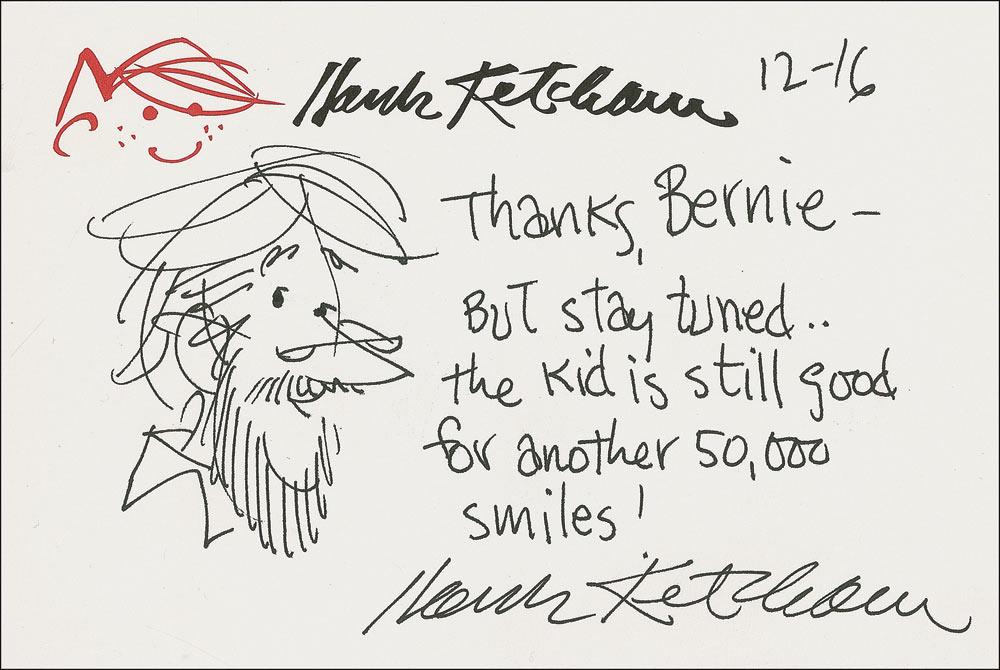 Hank Ketcham 12-16
Thanks, Bernie -
But stay tuned..
the kid is still good
for another 50,000
smiles!
Hank Ketcham